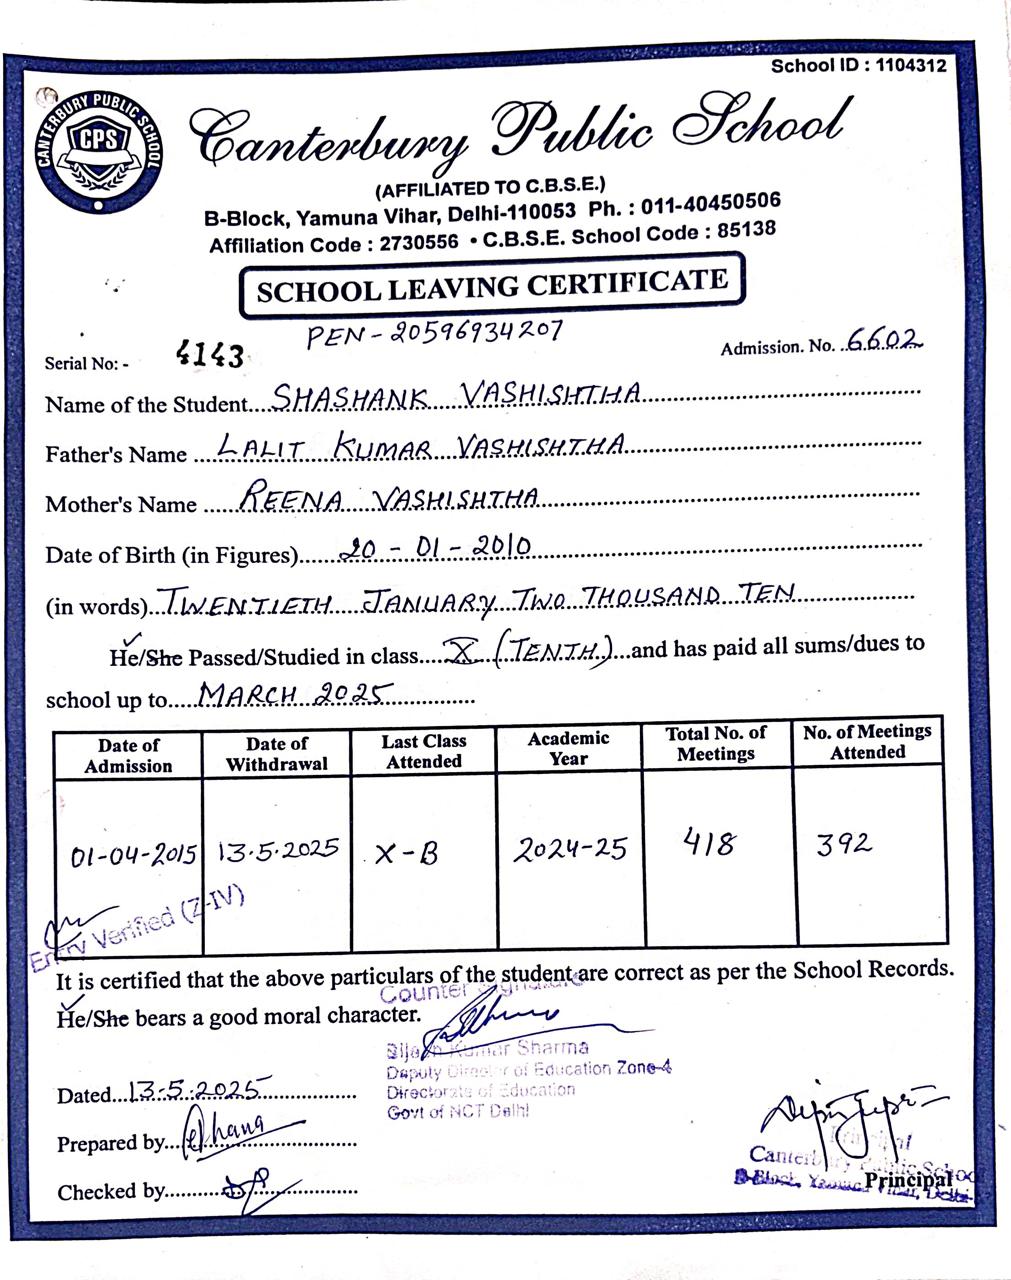 School ID : 1104312
CANTERBURY PUBLIC SCHOOL
CPS
Canterbury Public School
(AFFILIATED TO C.B.S.E.)
B-Block, Yamuna Vihar, Delhi-110053 Ph. : 011-40450506
Affiliation Code : 2730556 • C.B.S.E. School Code : 85138
SCHOOL LEAVING CERTIFICATE
PEN - 20596934207
Serial No: - 4143 Admission. No. 6602
Name of the Student SHASHANK VASHISHTHA
Father's Name LALIT KUMAR VASHISHTHA
Mother's Name REENA VASHISHTHA
Date of Birth (in Figures) 20 - 01 - 2010
(in words) TWENTIETH JANUARY TWO THOUSAND TEN
He/She Passed/Studied in class X (TENTH) and has paid all sums/dues to
school up to MARCH 2025
Date of Admission Date of Withdrawal Last Class Attended Academic Year Total No. of Meetings No. of Meetings Attended
01-04-2015 13.5.2025 X-B 2024-25 418 392
Entry Verified (Z-IV)
It is certified that the above particulars of the student are correct as per the School Records.
Counter
He/She bears a good moral character.
Kumar Sharma
Deputy Director of Education Zone-4
Directorate of Education
Govt of NCT Delhi
Dated 13.5.2025
Prepared by
Checked by
Principal
Canterbury Public School
B-Block, Yamuna Vihar, Delhi-
Principal